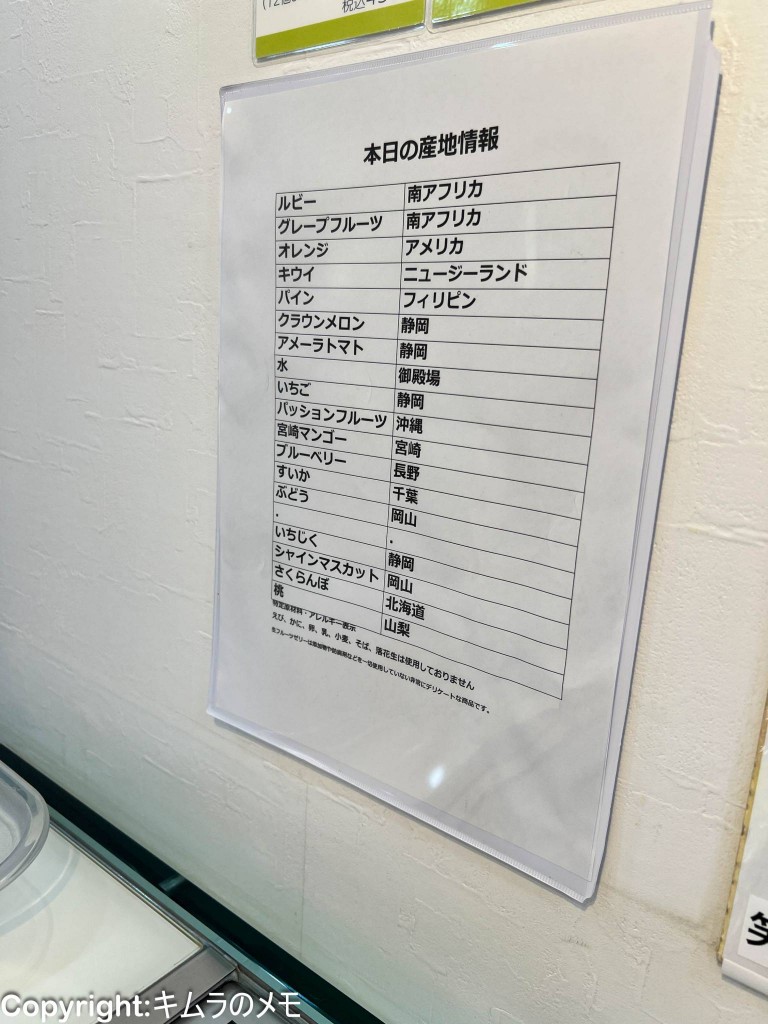 本日の産地情報
ルビー 南アフリカ
グレープフルーツ 南アフリカ
オレンジ アメリカ
キウイ ニュージーランド
パイン フィリピン
クラウンメロン 静岡
アメーラトマト 静岡
水 御殿場
いちご 静岡
パッションフルーツ 沖縄
宮崎マンゴー 宮崎
ブルーベリー 長野
すいか 千葉
ぶどう 岡山
. .
いちじく 静岡
シャインマスカット 岡山
さくらんぼ 北海道
桃 山梨
特定原材料・アレルギー表示
えび、かに、卵、乳、小麦、そば、落花生は使用しておりません
生フルーツゼリーは添加物や防腐剤などを一切使用していない非常にデリケートな商品です。
Copyright:キムラのメモ